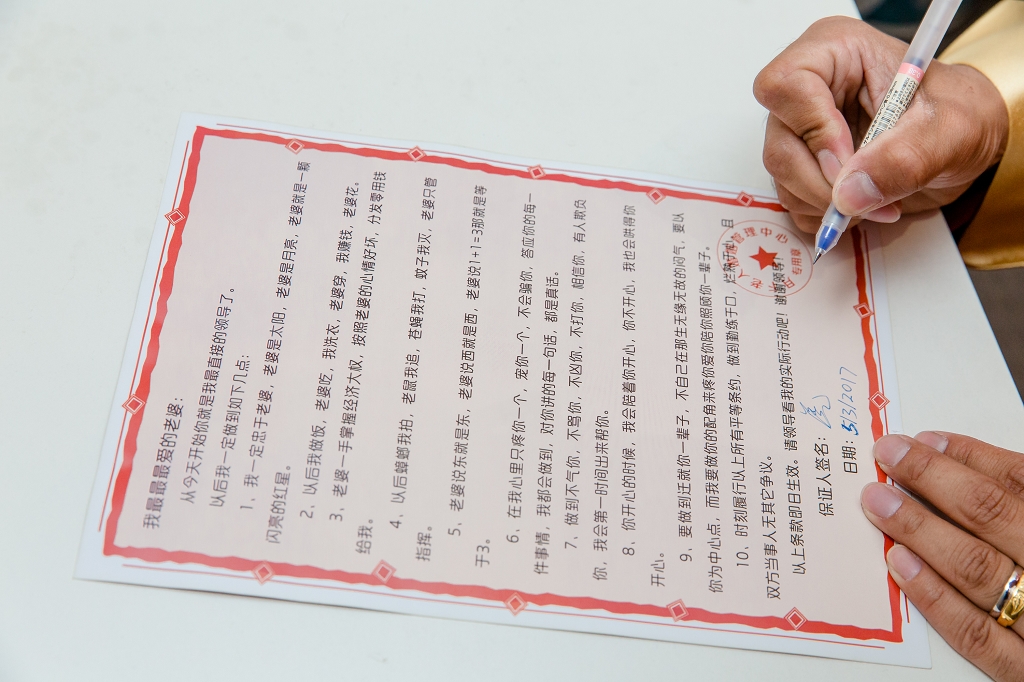 我最最最爱的老婆：
从今天开始你就是我最直接的领导了。
以后我一定做到如下几点：
1、我一定忠于老婆，老婆是太阳，老婆是月亮，老婆就是一颗
闪亮的红星。
2、以后我做饭，老婆吃，我洗衣，老婆穿，我赚钱，老婆花。
3、老婆一手掌握经济大权，按照老婆的心情好坏，分发零用钱
给我。
4、以后蟑螂我拍，老鼠我追，苍蝇我打，蚊子我灭，老婆只管
指挥。
5、老婆说东就是东，老婆说西就是西，老婆说1+1=3那就是等
于3。
6、在我心里只疼你一个，宠你一个，不会骗你，答应你的每一
件事情，我都会做到，对你讲的每一句话，都是真话。
7、做到不气你，不骂你，不凶你，不打你，相信你，有人欺负
你，我会第一时间出来帮你。
8、你开心的时候，我会陪着你开心，你不开心，我也会哄得你
开心。
9、要做到迁就你一辈子，不自己在那生无缘无故的闷气，要以
你为中心点，而我要做你的配角来疼你爱你陪你照顾你一辈子。
10、时刻履行以上所有平等条约，做到勤练于口，烂熟于心，且
双方当事人无其它争议。
以上条款即日生效。请领导看我的实际行动吧！谢谢领导！
管理中心
专用章
保证人签名：
日期：5/3/2017